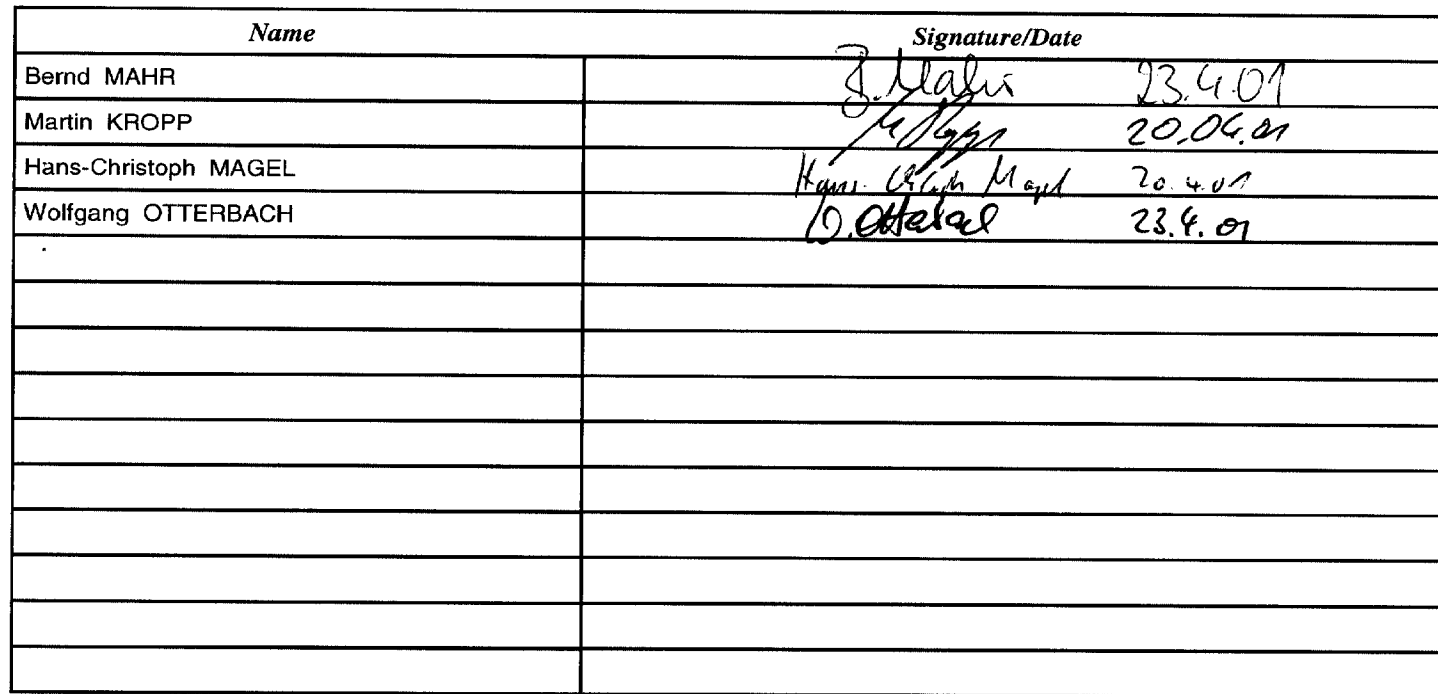 Name Signature/Date
Bernd MAHR B. Mahr 23.4.01
Martin KROPP 20.04.01
Hans-Christoph MAGEL Hans-Christoph Magel 20.4.01
Wolfgang OTTERBACH W. Otterbach 23.4.01